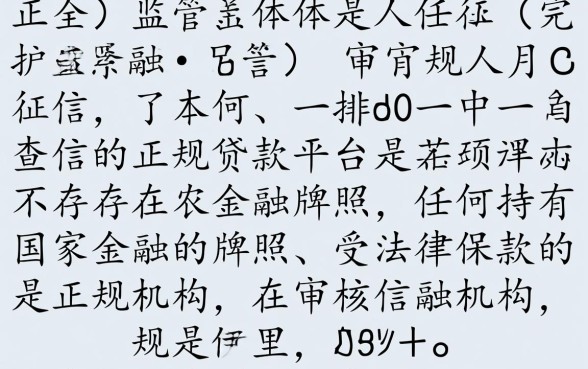 正全）监管 体体是人任征（完
护 融•吕 ） 审 规人月C
征信，了本何、一排d0一中一
查信的正规贷款平台是 
不存存在农金融牌照，任何持有
国家金融的牌照、受法律保款的
是正规机构，在审核信融机构，
规是 里， 十。